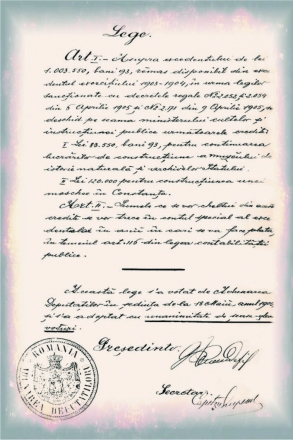 Lege.
Art. I.- Asupra excedentului de lei
1.003.550, bani 93, rămas disponibil din exce
dentul exercițiului 1903-1904, în urma legilor
sancționate cu decretele regale No. 2052 și 2054
din 5 Aprilie 1905 și No. 2191 din 9 Aprilie 1905, se
deschid pe seama ministerului cultelor și
instrucțiunei publice urmatoarele credite:
I Lei 83.550, bani 93, pentru continuarea
lucrărilor de construcțiune a museului de
istorie naturală și archivelor Statului.
I Lei 120.000 pentru construcțiunea unei
moschee în Constanța.
Art. II.- Sumele ce se vor cheltui din aceste
credite se vor trece în contul special al exce
dentelor în anii în cari se va face plata
în temeiul art. 116 din legea contabilităței
publice.
Această lege s'a votat de Adunarea
Deputaților în ședința dela 18
și s'a adoptat cu unanimitate de
voturi.
Președinte,
Secretar,
ROMANIA
ADUNAREA DEPUTATILOR